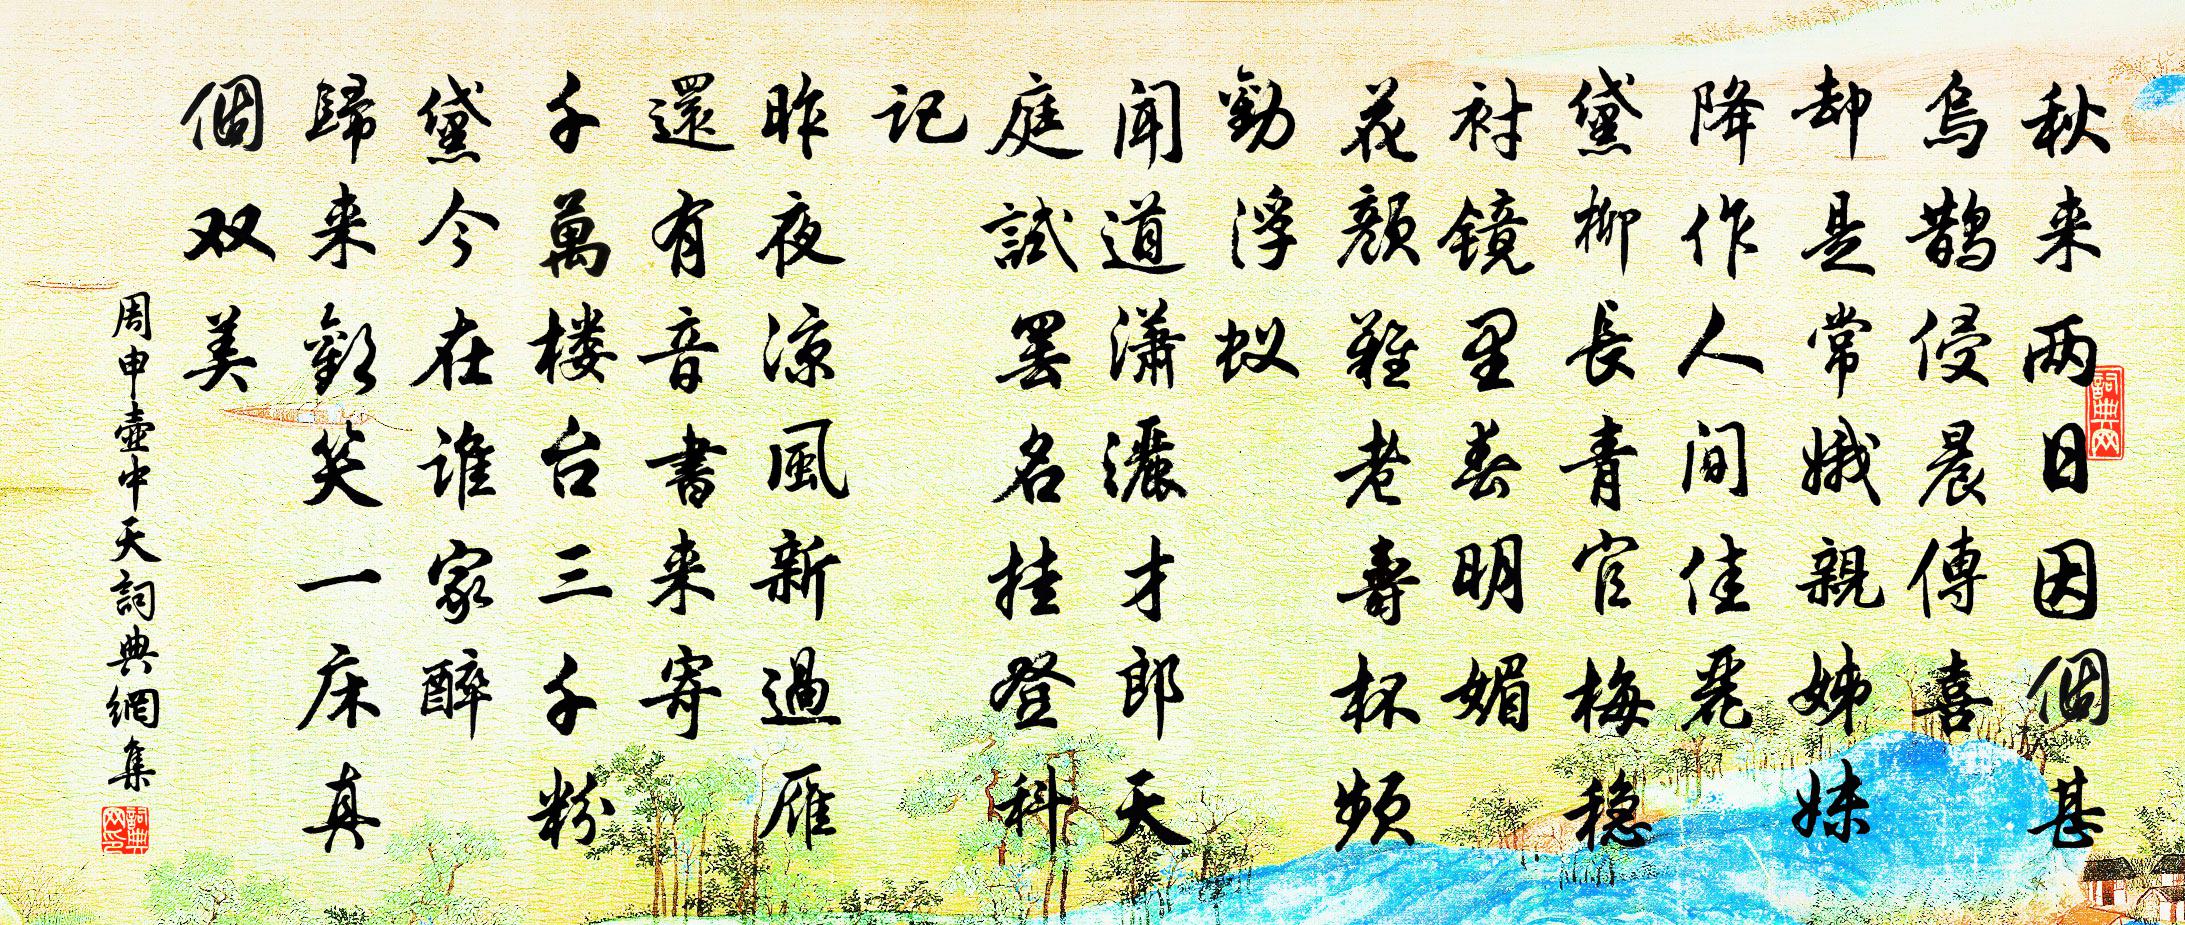 秋来两日因個甚
烏鹊侵晨傳喜
却是常娥親姊妹
降作人间佳麗
黛柳長青官梅穏
衬镜里春明媚
花颜難老壽杯频
勸浮蚁
闻道潇灑才郎天
庭試罢名挂登科
记
昨夜涼風新過雁
還有音書来寄
千萬楼台三千粉
黛今在谁家醉
歸来歡笑一床真
個双美
周申壺中天詞典網集
詞典网
詞典网印